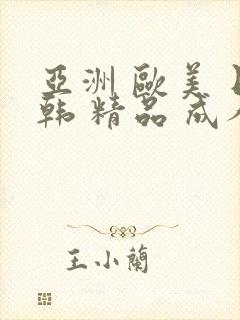 亞洲歐美
韩精品成
王小蘭